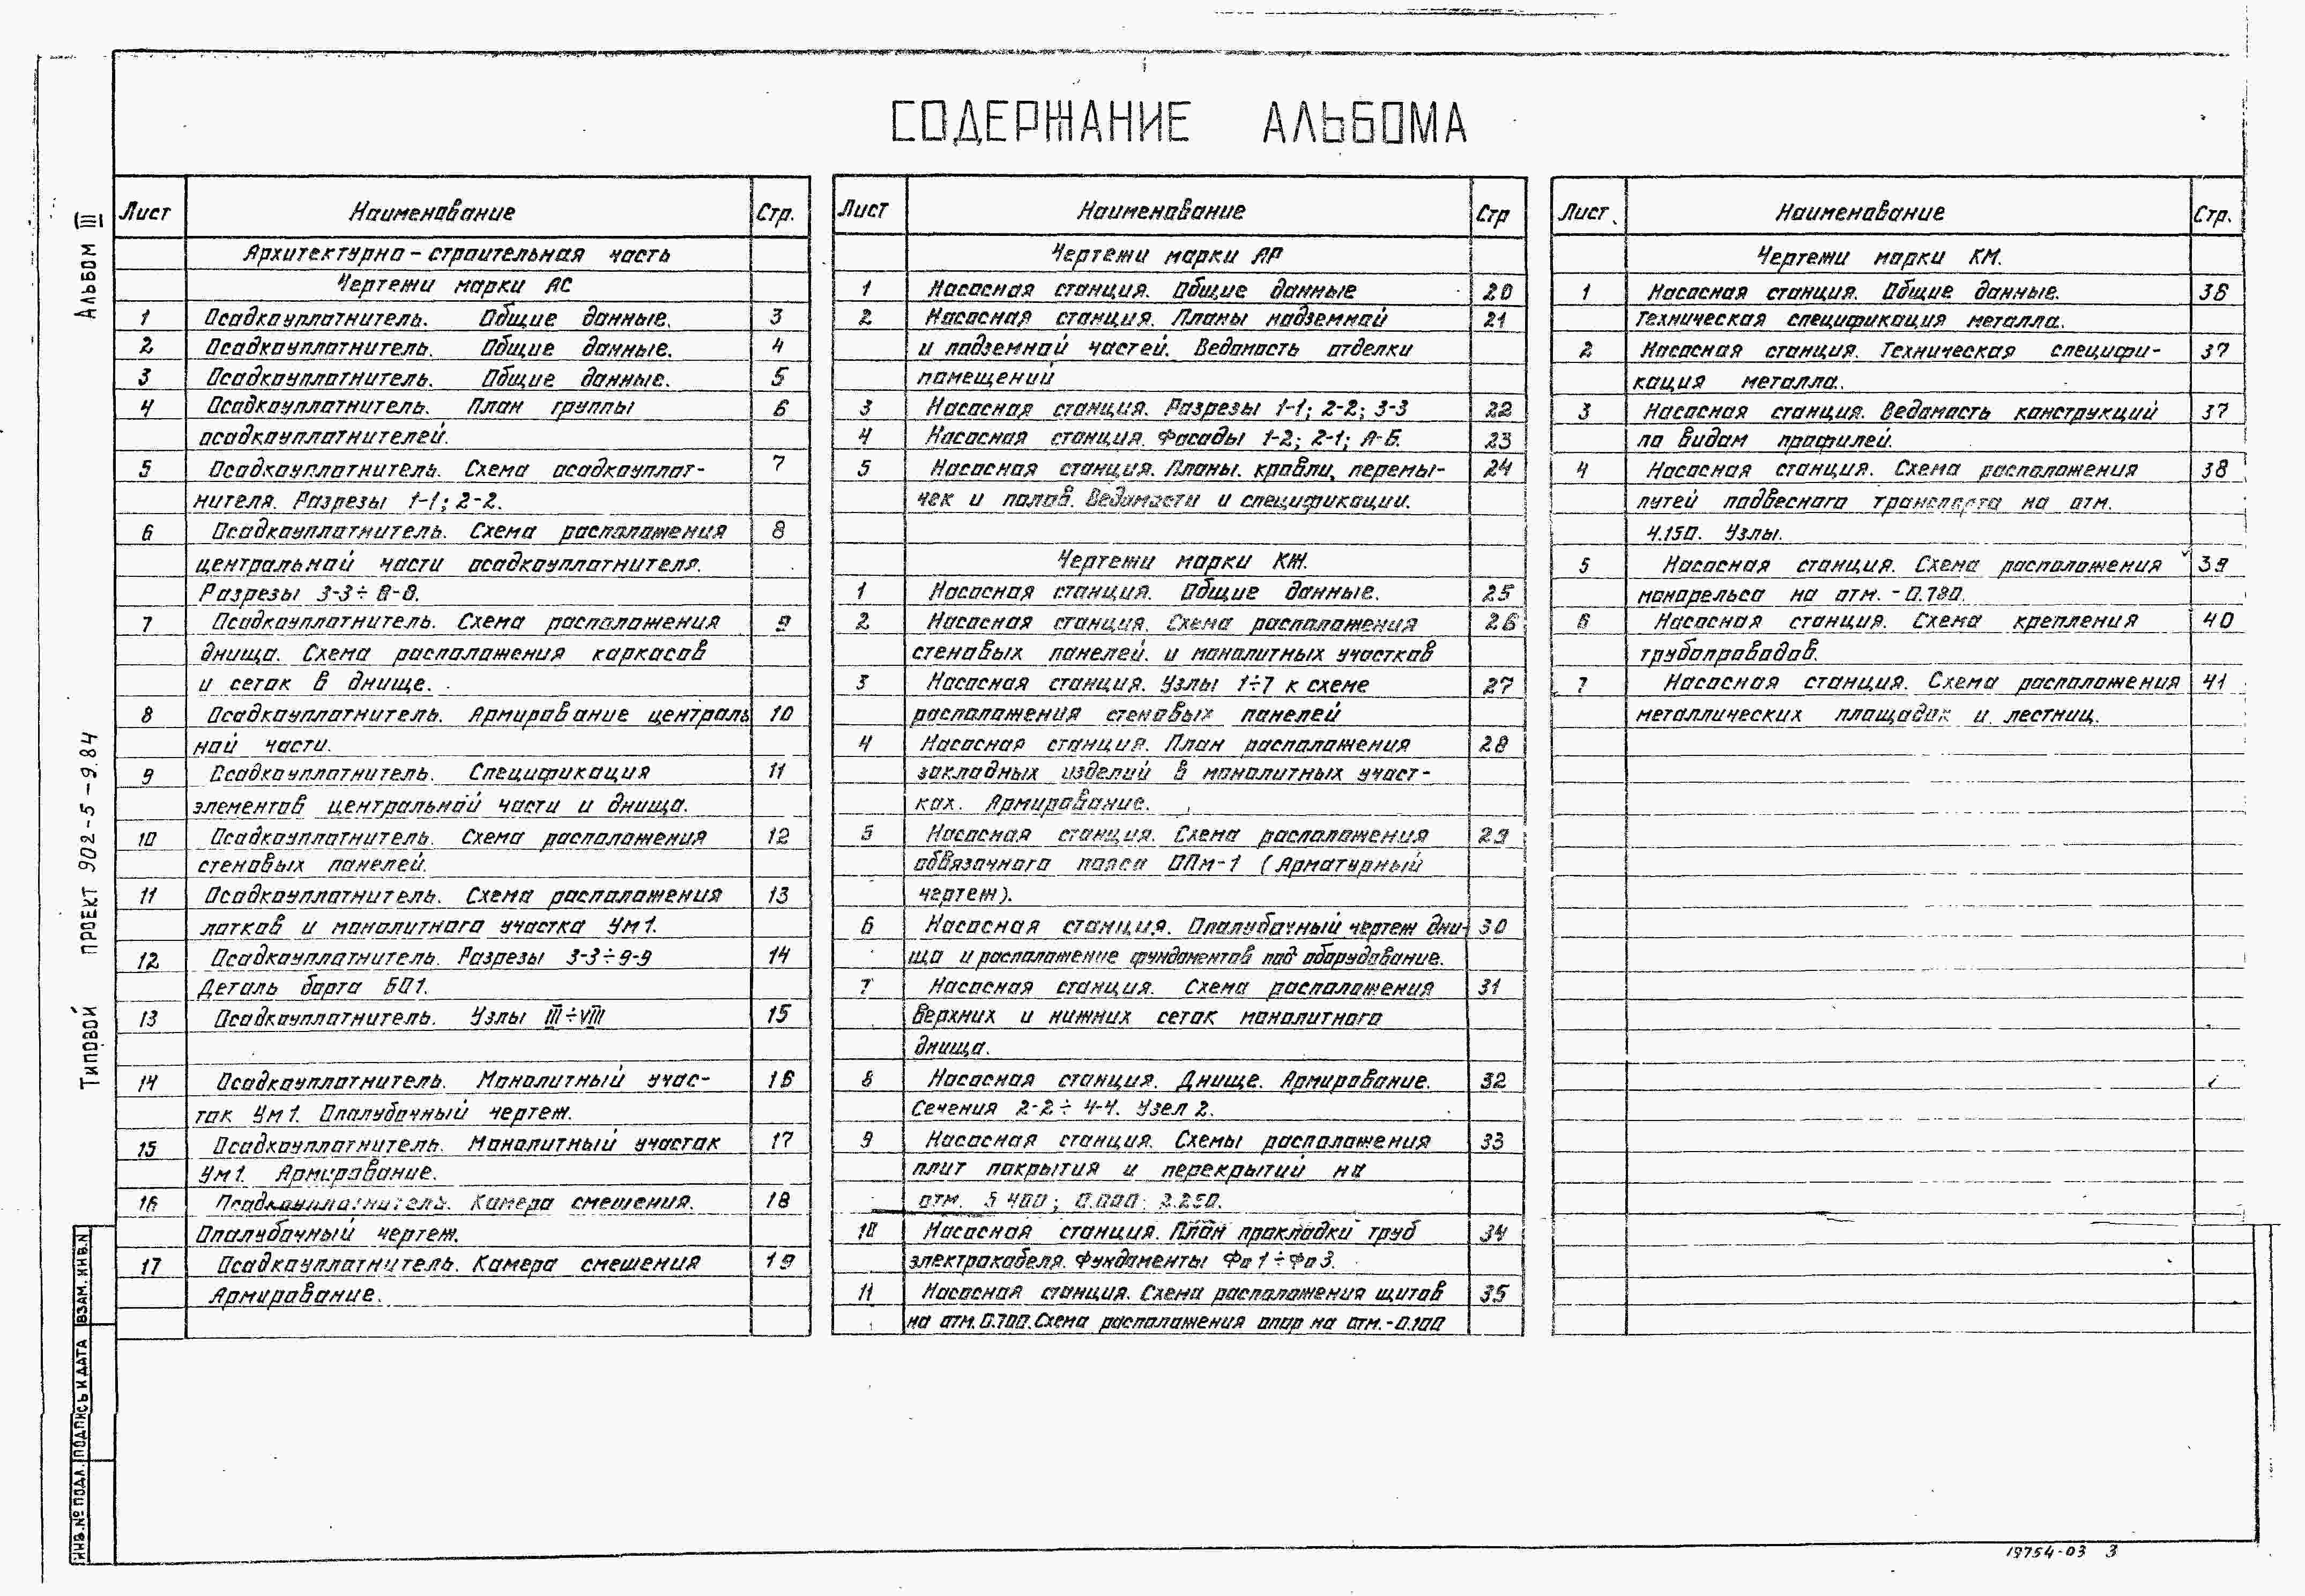 СОДЕРЖАНИЕ АЛЬБОМА
Альбом III
Типовой проект 902-5-9.84
Лист Наименование Стр.
Архитектурно-строительная часть
Чертежи марки АС
1 Осадкоуплотнитель. Общие данные. 3
2 Осадкоуплотнитель. Общие данные. 4
3 Осадкоуплотнитель. Общие данные. 5
4 Осадкоуплотнитель. План группы 6
осадкоуплотнителей.
5 Осадкоуплотнитель. Схема осадкоуплот- 7
нителя. Разрезы 1-1; 2-2.
6 Осадкоуплотнитель. Схема расположения 8
центральной части осадкоуплотнителя.
Разрезы 3-3÷8-8.
7 Осадкоуплотнитель. Схема расположения 9
днища. Схема расположения каркасов
и сеток в днище.
8 Осадкоуплотнитель. Армирование централь 10
ной части.
9 Осадкоуплотнитель. Спецификация 11
элементов центральной части и днища.
10 Осадкоуплотнитель. Схема расположения 12
стеновых панелей.
11 Осадкоуплотнитель. Схема расположения 13
лотков и монолитного участка Ум1.
12 Осадкоуплотнитель. Разрезы 3-3÷9-9 14
Деталь борта БО1.
13 Осадкоуплотнитель. Узлы III÷VIII 15
14 Осадкоуплотнитель. Монолитный учас- 16
ток Ум1. Опалубочный чертеж.
15 Осадкоуплотнитель. Монолитный участок 17
Ум1. Армирование.
16 Осадкоуплотнитель. Камера смешения. 18
Опалубочный чертеж.
17 Осадкоуплотнитель. Камера смешения 19
Армирование.
Лист Наименование Стр
Чертежи марки АР
1 Насосная станция. Общие данные 20
2 Насосная станция. Планы надземной 21
и подземной частей. Ведомость отделки
помещений
3 Насосная станция. Разрезы 1-1; 2-2; 3-3 22
4 Насосная станция. Фасады 1-2; 2-1; А-Б. 23
5 Насосная станция. Планы. кровли, перемы- 24
чек и полов. Ведомости и спецификации.
Чертежи марки КЖ.
1 Насосная станция. Общие данные. 25
2 Насосная станция. Схема расположения 26
стеновых панелей. и монолитных участков
3 Насосная станция. Узлы 1÷7 к схеме 27
расположения стеновых панелей
4 Насосная станция. План расположения 28
закладных изделий в монолитных участ-
ках. Армирование.
5 Насосная станция. Схема расположения 29
обвязочного пояса ОПм-1 (Арматурный
чертеж).
6 Насосная станция. Опалубочный чертеж дни- 30
ща и расположение фундаментов под оборудование.
7 Насосная станция. Схема расположения 31
верхних и нижних сеток монолитного
днища.
8 Насосная станция. Днище. Армирование. 32
Сечения 2-2÷4-4. Узел 2.
9 Насосная станция. Схемы расположения 33
плит покрытия и перекрытий на
отм. 5 400; 0.000; 2.250.
10 Насосная станция. План прокладки труб 34
электрокабеля. Фундаменты Фо1÷Фо3.
11 Насосная станция. Схема расположения щитов 35
на отм. 0.700. Схема расположения опор на отм.-0.100
Лист Наименование Стр.
Чертежи марки КМ.
1 Насосная станция. Общие данные. 36
Техническая спецификация металла.
2 Насосная станция. Техническая специфи- 37
кация металла.
3 Насосная станция. Ведомость конструкций 37
по видам профилей.
4 Насосная станция. Схема расположения 38
путей подвесного транспорта на отм.
4.150. Узлы.
5 Насосная станция. Схема расположения 39
монорельса на отм. -0.780.
6 Насосная станция. Схема крепления 40
трубопроводов.
7 Насосная станция. Схема расположения 41
металлических площадок и лестниц.
ИНВ.№ ПОДЛ. ПОДПИСЬ И ДАТА ВЗАМ. ИНВ.N
19754-03 3